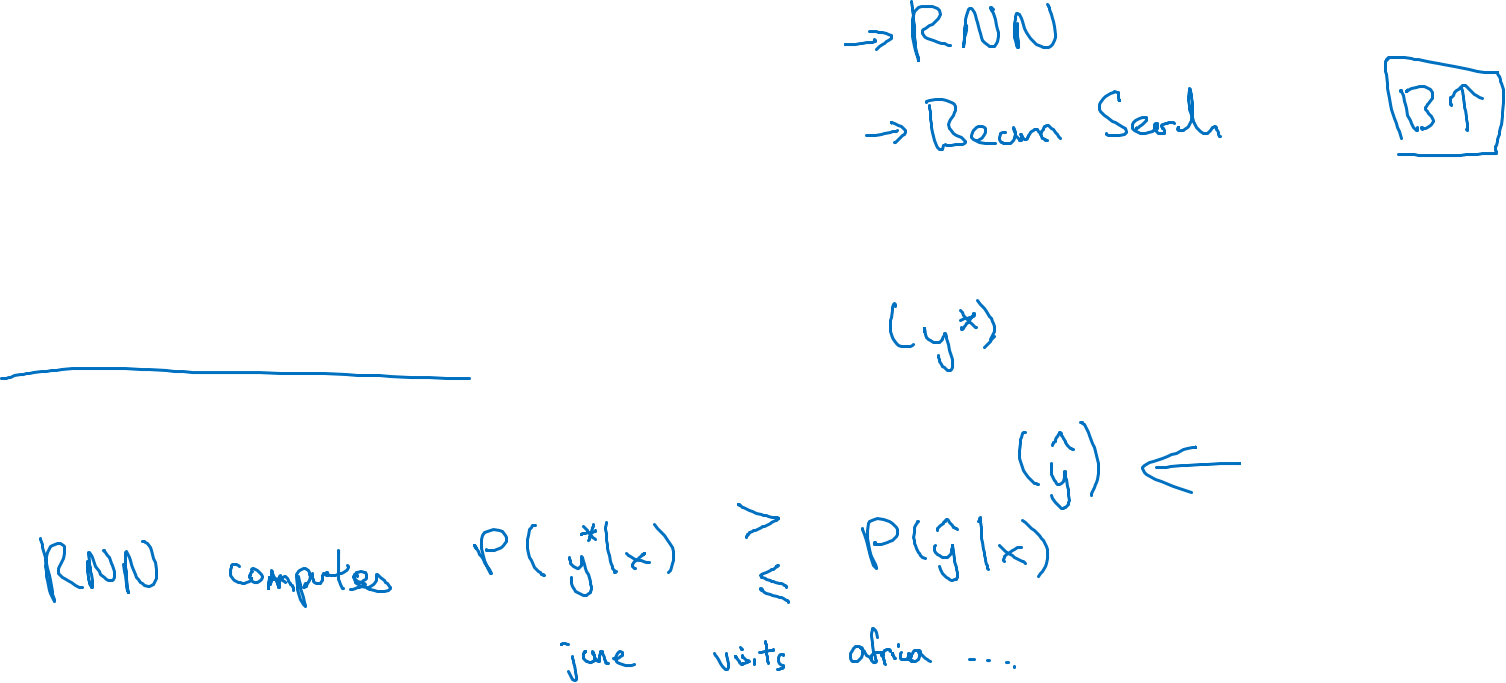 → RNN
→ Beam Search B↑
(y*)
(ŷ) ←
RNN computes P(y*|x) > ≤ P(ŷ|x)
jane visits africa ....